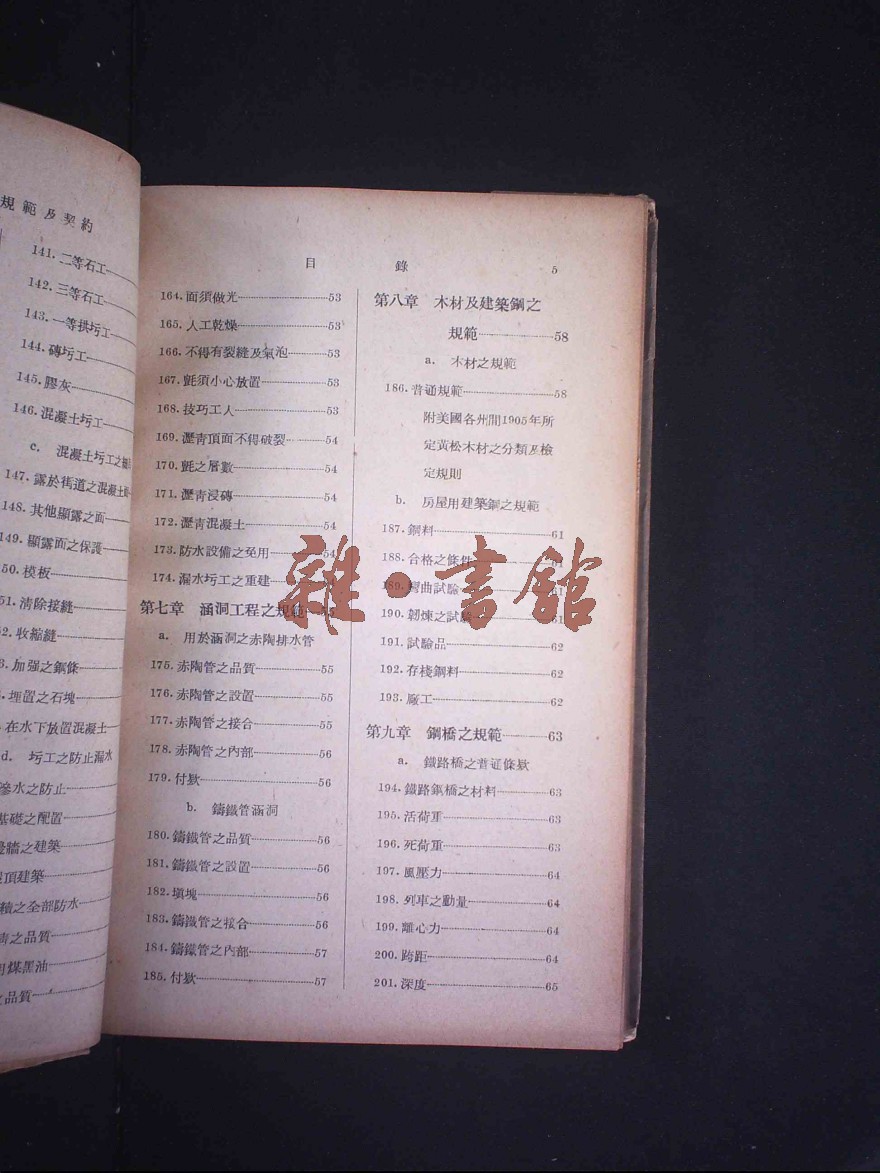 規範及契約
141.二等石工
142.三等石工
143.一等拱圬工
144.磚圬工
145.膠灰
146.混凝土圬工
c. 混凝土圬工之
147.露於街道之混凝土
148.其他顯露之面
149.顯露面之保護
50.模板
51.清除接縫
52.收縮縫
3.加强之鋼條
.埋置之石塊
在水下放置混凝土
d. 圬工之防止漏水
滲水之防止
基礎之配置
牆之建築
頂建築
之全部防水
之品質
用煤黑油
之品質
目錄 5
164.面須做光 53
165.人工乾燥 53
166.不得有裂縫及氣泡 53
167.氈須小心放置 53
168.技巧工人 53
169.瀝青頂面不得破裂 54
170.氈之層數 54
171.瀝青浸磚 54
172.瀝青混凝土 54
173.防水設備之免用 54
174.漏水圬工之重建 54
第七章 涵洞工程之規範 55
a. 用於涵洞之赤陶排水管
175.赤陶管之品質 55
176.赤陶管之設置 55
177.赤陶管之接合 55
178.赤陶管之內部 56
179.付欵 56
b. 鑄鐵管涵洞
180.鑄鐵管之品質 56
181.鑄鐵管之設置 56
182.塡塊 56
183.鑄鐵管之接合 56
184.鑄鐵管之內部 57
185.付欵 57
第八章 木材及建築鋼之
規範 58
a. 木材之規範
186.普通規範 58
附美國各州間1905年所
定黃松木材之分類及檢
定規則
b. 房屋用建築鋼之規範
187.鋼料 61
188.合格之條件 61
189.彎曲試驗 61
190.韌煉之試驗 61
191.試驗品 62
192.存棧鋼料 62
193.廠工 62
第九章 鋼橋之規範 63
a. 鐵路橋之普通條欵
194.鐵路鋼橋之材料 63
195.活荷重 63
196.死荷重 63
197.風壓力 64
198.列車之動量 64
199.離心力 64
200.跨距 64
201.深度 65
雜·書館